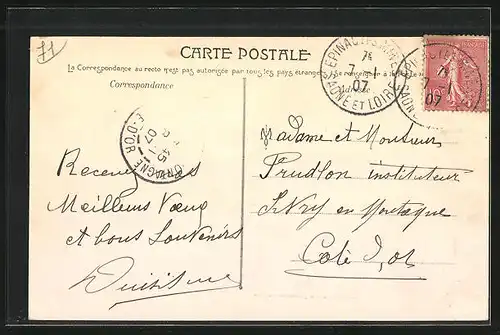 71
CARTE POSTALE
La Correspondance au recto n'est pas autorisée par tous les pays étrangers. (Se renseigner à la Poste)
Correspondance
Adresse
EPINAC-LES-MINES
7 -1
07
SAONE ET LOIRE
07
SAONE
07
D'OR
Recevez
Meilleurs Vœux
et bons Souvenirs
Madame et Monsieur
Prudlon instituteur
Ivry en Montagne
Cote d'or